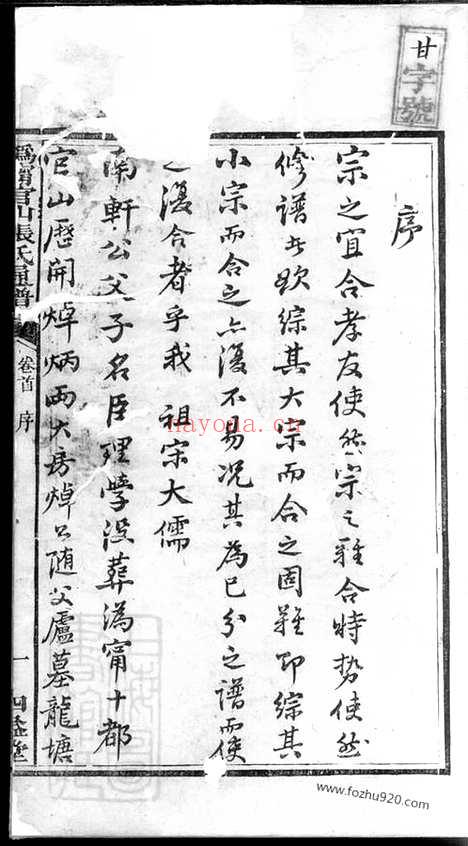 甘
字號
序
宗之宜合孝友使然宗之難合時勢使然
修譜者欲綜其大宗而合之固難即綜其
小宗而合之亦復不易况其為已分之譜而使
之復合者乎我 祖宗大儒
南軒公父子名臣理學没葬溈甯十都
官山歷開焯炳两大房焯公随父廬墓龍塘
溈甯官山張氏通譜
卷首 序
一
四益堂
nayona.cn
www.fozhu920.com